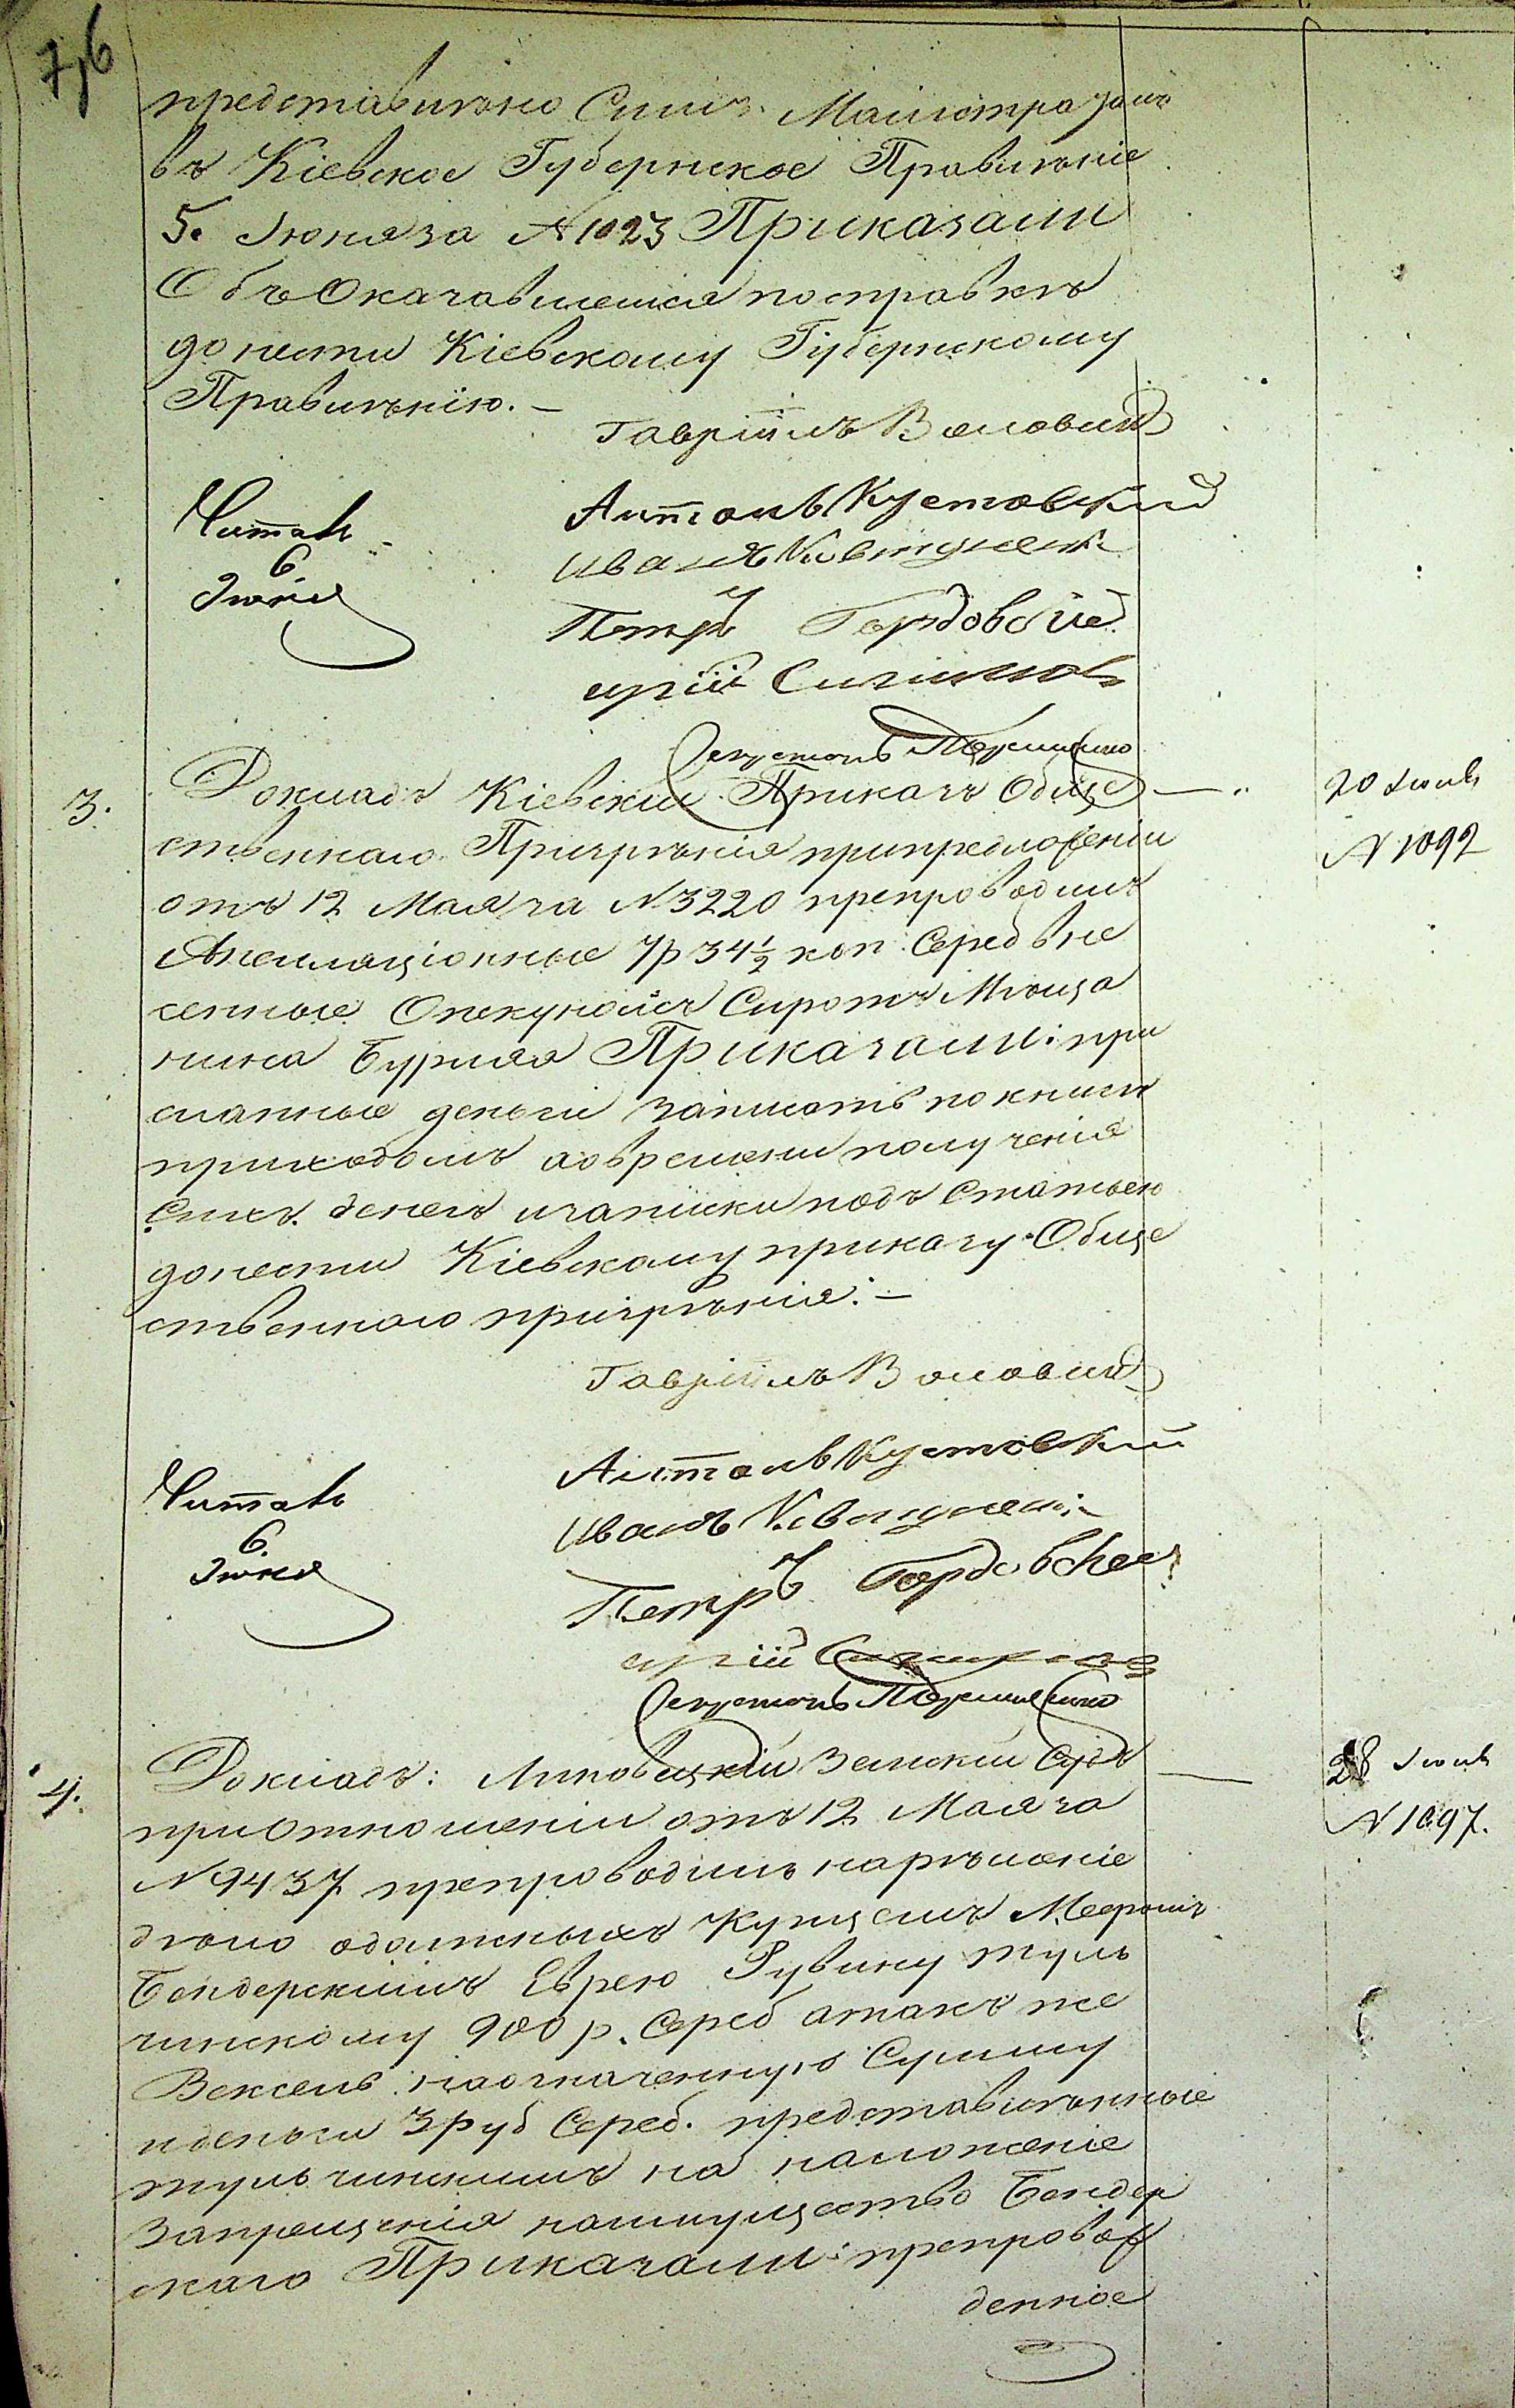 7,6
представлѣно Симъ Магистратомъ
въ Кіевское Губернское Правленіе
5. Іюня за № 1023 Приказали
Объ Оказавшемся по справкѣ
донести Кіевскому Губернскому
Правлѣнію. –
Гавріилъ
Читалъ
6
Іюня
Антонъ Кустовский
Иванъ
Петръ Гордовский
Секретарь
3.
Докладъ Кіевскій Приказъ Обще
ственнаго Призрѣнія при предложеніи
отъ 12 Мая за № 3220 препроводилъ
Апелляціонные 7 р 34½ коп. Сереб вне
сенные Опекуномъ Сиротъ Мѣща
нина Бурлая Приказали: при
сланные деньги записать по книгѣ
приходомъ а о времени полученія
Сихъ денегъ и записки подъ Статьею
донести Кіевскому приказу Обще
ственнаго призрѣнія: –
20 Іюня
№ 1092
Гавріилъ
Читалъ
6
Іюня
Антонъ Кустовский
Иванъ
Петръ Гордовский
Секретарь
4.
Докладъ: Липовецкій Земскій Судъ
при Отношеніи отъ 12 Мая за
№ 9437 препроводилъ на рѣшеніе
дѣло о должныхъ Купцемъ Мееромъ
Бендерскимъ Еврею Рувину Туль
чинскому 900 р. Сереб а такъ же
Вексель на означенную Сумму
и деньги 3 руб Сереб. представлѣнные
Тульчинскимъ на наложеніе
Запрещенія на имущество Бендер
скаго Приказали: препровож
денное
28 Іюня
№ 1097.